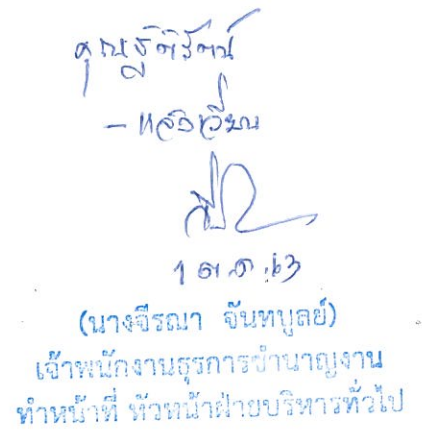 คุณฐิติรัตน์
- แจ้งเวียน
1 ต.ค. 63
(นางจีรณา จันทบูลย์)
เจ้าพนักงานธุรการชำนาญงาน
ทำหน้าที่ หัวหน้าฝ่ายบริหารทั่วไป